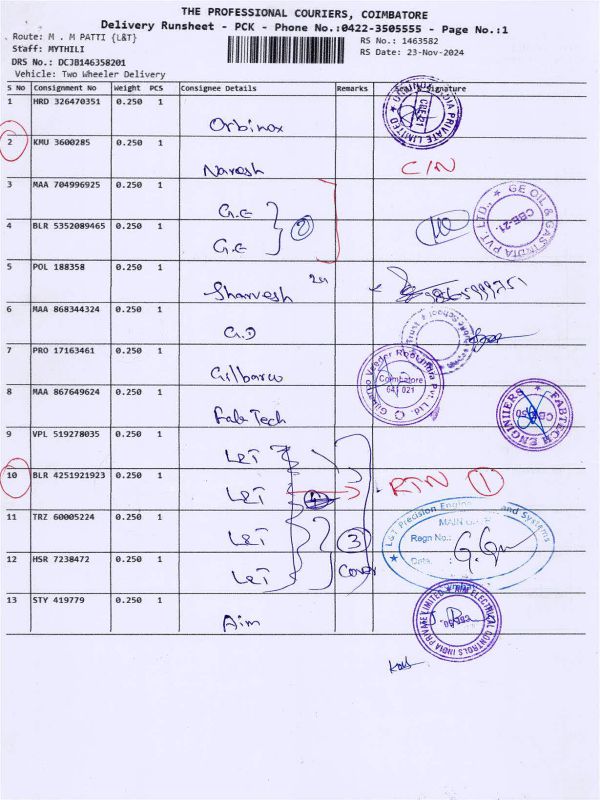 THE PROFESSIONAL COURIERS, COIMBATORE
Delivery Runsheet - PCK - Phone No.:0422-3505555 - Page No.:1
Route: M . M PATTI {L&T}
RS No.: 1463582
Staff: MYTHILI
RS Date: 23-Nov-2024
DRS No.: DCJB146358201
Vehicle: Two Wheeler Delivery
S No Consignment No Weight PCS Consignee Details Remarks Signature
1 HRD 326470351 0.250 1
Orbinox
2 KMU 3600285 0.250 1
Naresh C/N
3 MAA 704996925 0.250 1
G.E
4 BLR 5352089465 0.250 1
G.E
2
GE OIL & GAS INDIA PVT. LTD.,
CBE-21.
5 POL 188358 0.250 1
Sharvesh
6 MAA 868344324 0.250 1
G.D
7 PRO 17163461 0.250 1
Gilbarco
Coimbatore
641 021
8 MAA 867649624 0.250 1
Fab Tech
FABTECH ENGINEERS
9 VPL 519278035 0.250 1
L&T
10 BLR 4251921923 0.250 1
L&T 4 RTN 1
11 TRZ 60005224 0.250 1
L&T 3
L&T Precision Engineering and Systems
MAIN
Regn No.:
Date :
12 HSR 7238472 0.250 1
L&T Cover
13 STY 419779 0.250 1
Aim
AIM ELECTRICAL CONTROLS INDIA PRIVATE LIMITED